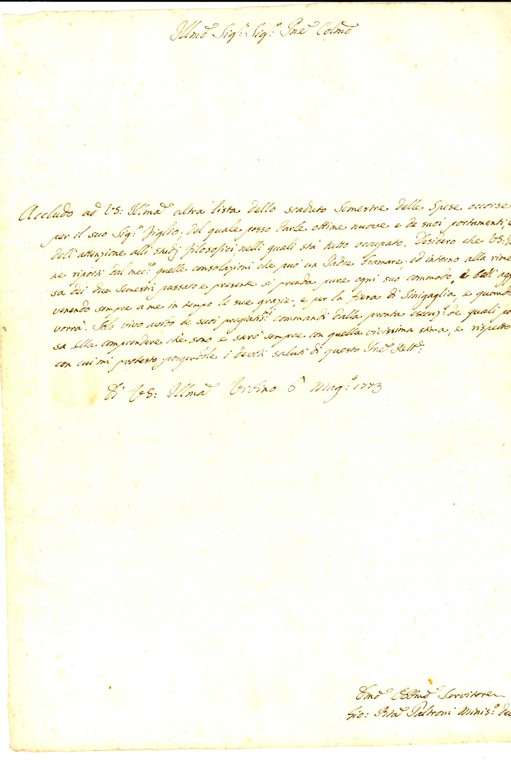 Illmo Sigr: Sigr: Pne Colmo
Accludo ad VS: Illma altra lista dello scaduto Semestre delle Spese occorse
per il suo Sigr: Figlio, del quale posso darle ottime nuove e de suoi portamenti e
dell'attenzione alli studj filosofici nelli quali sta tutto occupato. Desidero che VS:
ne riporti quelle consolazioni che può un Padre bramare, ed intorno alla rimes
sa dei due Semestri passato e presente si prenda pure ogni suo commodo,
venendo sempre a me in tempo le sue grazie, e per la Fiera di Sinigaglia, e quando
vorrà. Io vivo avido de suoi commandi dalla pronta de quali po
sa ella comprendere che sono e sarò sempre con quella vivissima stima, e rispetto
con cui mi protesto porgendole i devoti saluti di questo Pre Rett:
Di VS: Illma Urbino 6 Magg: 1773
Devmo Obbmo Servitore
Gio: Btta Paltroni Minis: de